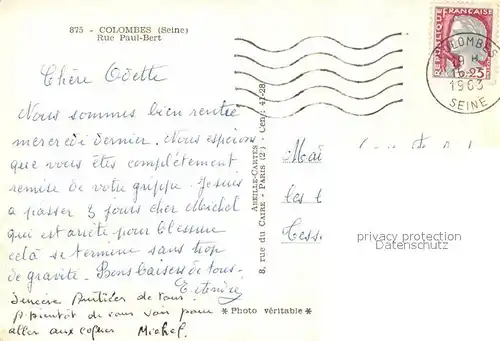 875 - COLOMBES (Seine)
Rue Paul-Bert
Chère Odette
Nous sommes bien rentré
mercredi dernier. Nous espérons
que vous êtes complètement
remise de votre grippe. Je suis
a passer 3 jours chez Michel
qui est arrêté pour blessure
celà se termine sans trop
de gravité. Bons baisers de tous.
Sincère Amitiés de tous.
A bientôt de vous voir pour
aller aux coques Michel.
ABEILLE-CARTES
8, rue du CAIRE - PARIS (2e) - Cen. 41-28
* Photo véritable *
REPUBLIQUE FRANÇAISE
COLOMBES
16-
1963
SEINE
les
privacy protection
Datenschutz